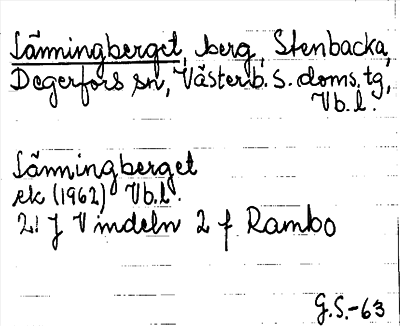 Sänningberget, berg, Stenbacka,
Degerfors sn, Västerb. s. doms. tg,
Vb. l.
Sänningberget
ek (1962) Vb.l.
21 J Vindeln 2 f Rambo
G.S.-63